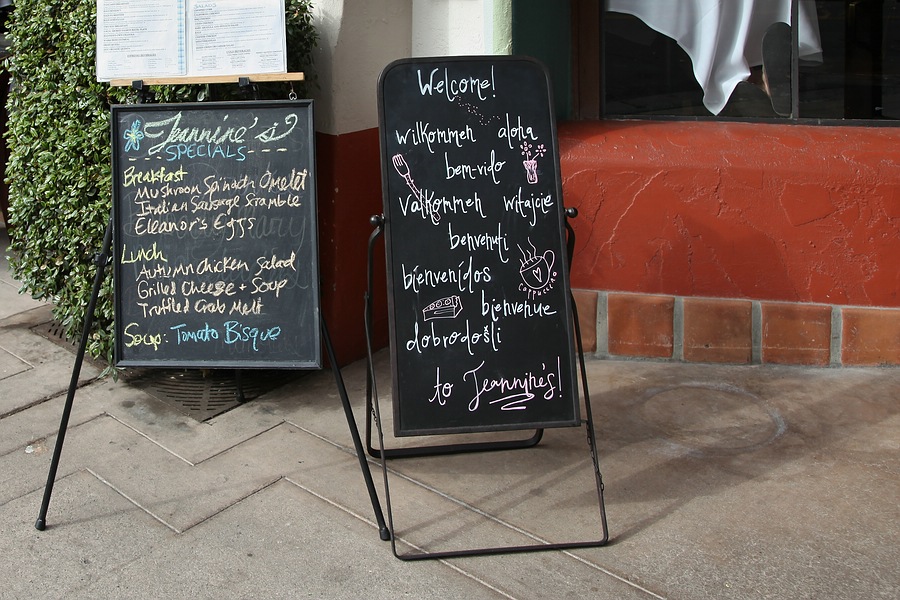 Jeannine's
SPECIALS
Breakfast
Mushroom Spinach Omelet
Italian Sausage Scramble
Eleanor's Eggs
Lunch
Autumn Chicken Salad
Grilled Cheese + Soup
Truffled Crab Melt
Soup: Tomato Bisque
Welcome!
wilkommen aloha
bem-vido
Valkommen witajcie
benvenuti
bienvenidos
cappuccino
bienvenue
dobrodošli
to Jeannine's!